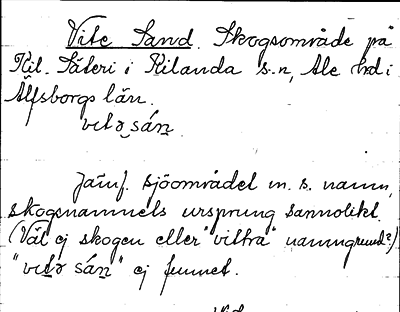 Vite Sand. Skogsområde på
Kil. Säteri i Kilanda s:n, Ale hrd i
Älfsborgs län.
vitə sán
Jämf. sjöområdet m. s. namn,
skogsnamnets ursprung sannolikt.
(Väl ej skogen eller "vittra" namngrund?)
"vitə sán" ej funnet.